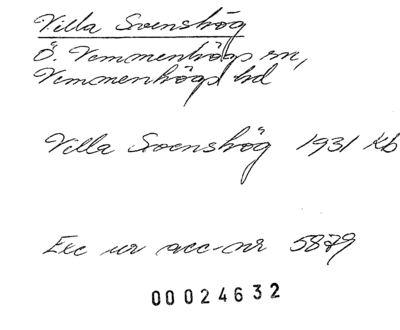 Villa Svenshög
Ö. Vemmenhögs sn,
Vemmenhögs hd
Villa Svenshög 1931 Kb
Exc ur acc-nr 5879
00024632